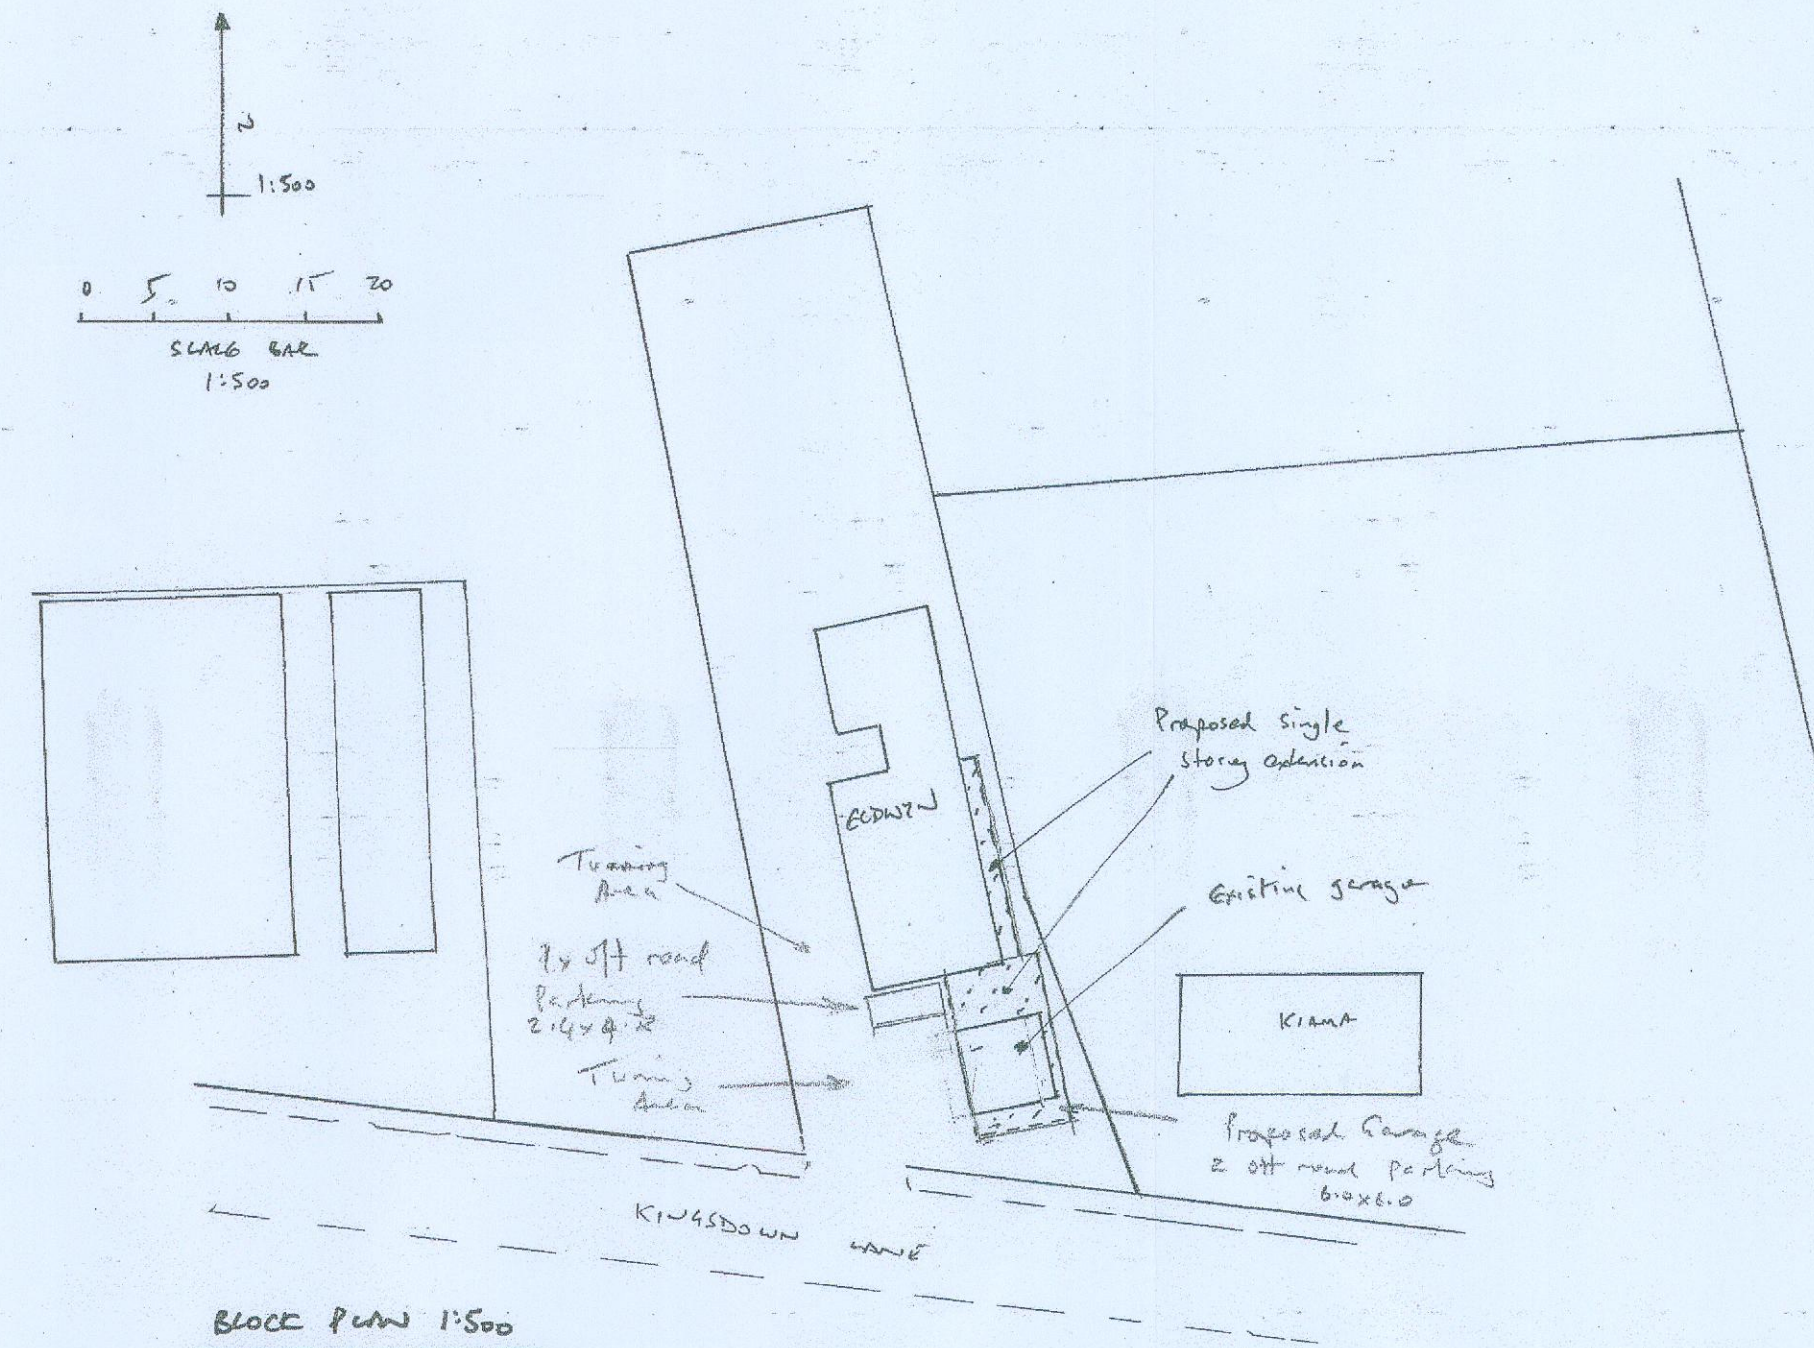 N
1:500
0 5 10 15 20
SCALE BAR
1:500
Proposed single
storey extension
ELDWYN
Turning
Area
Existing garage
1 x off road
Parking
2.4 x 4.8
KIAMA
Turning
Area
Proposed Garage
2 off road parking
6.0x6.0
KINGSDOWN LANE
BLOCK PLAN 1:500